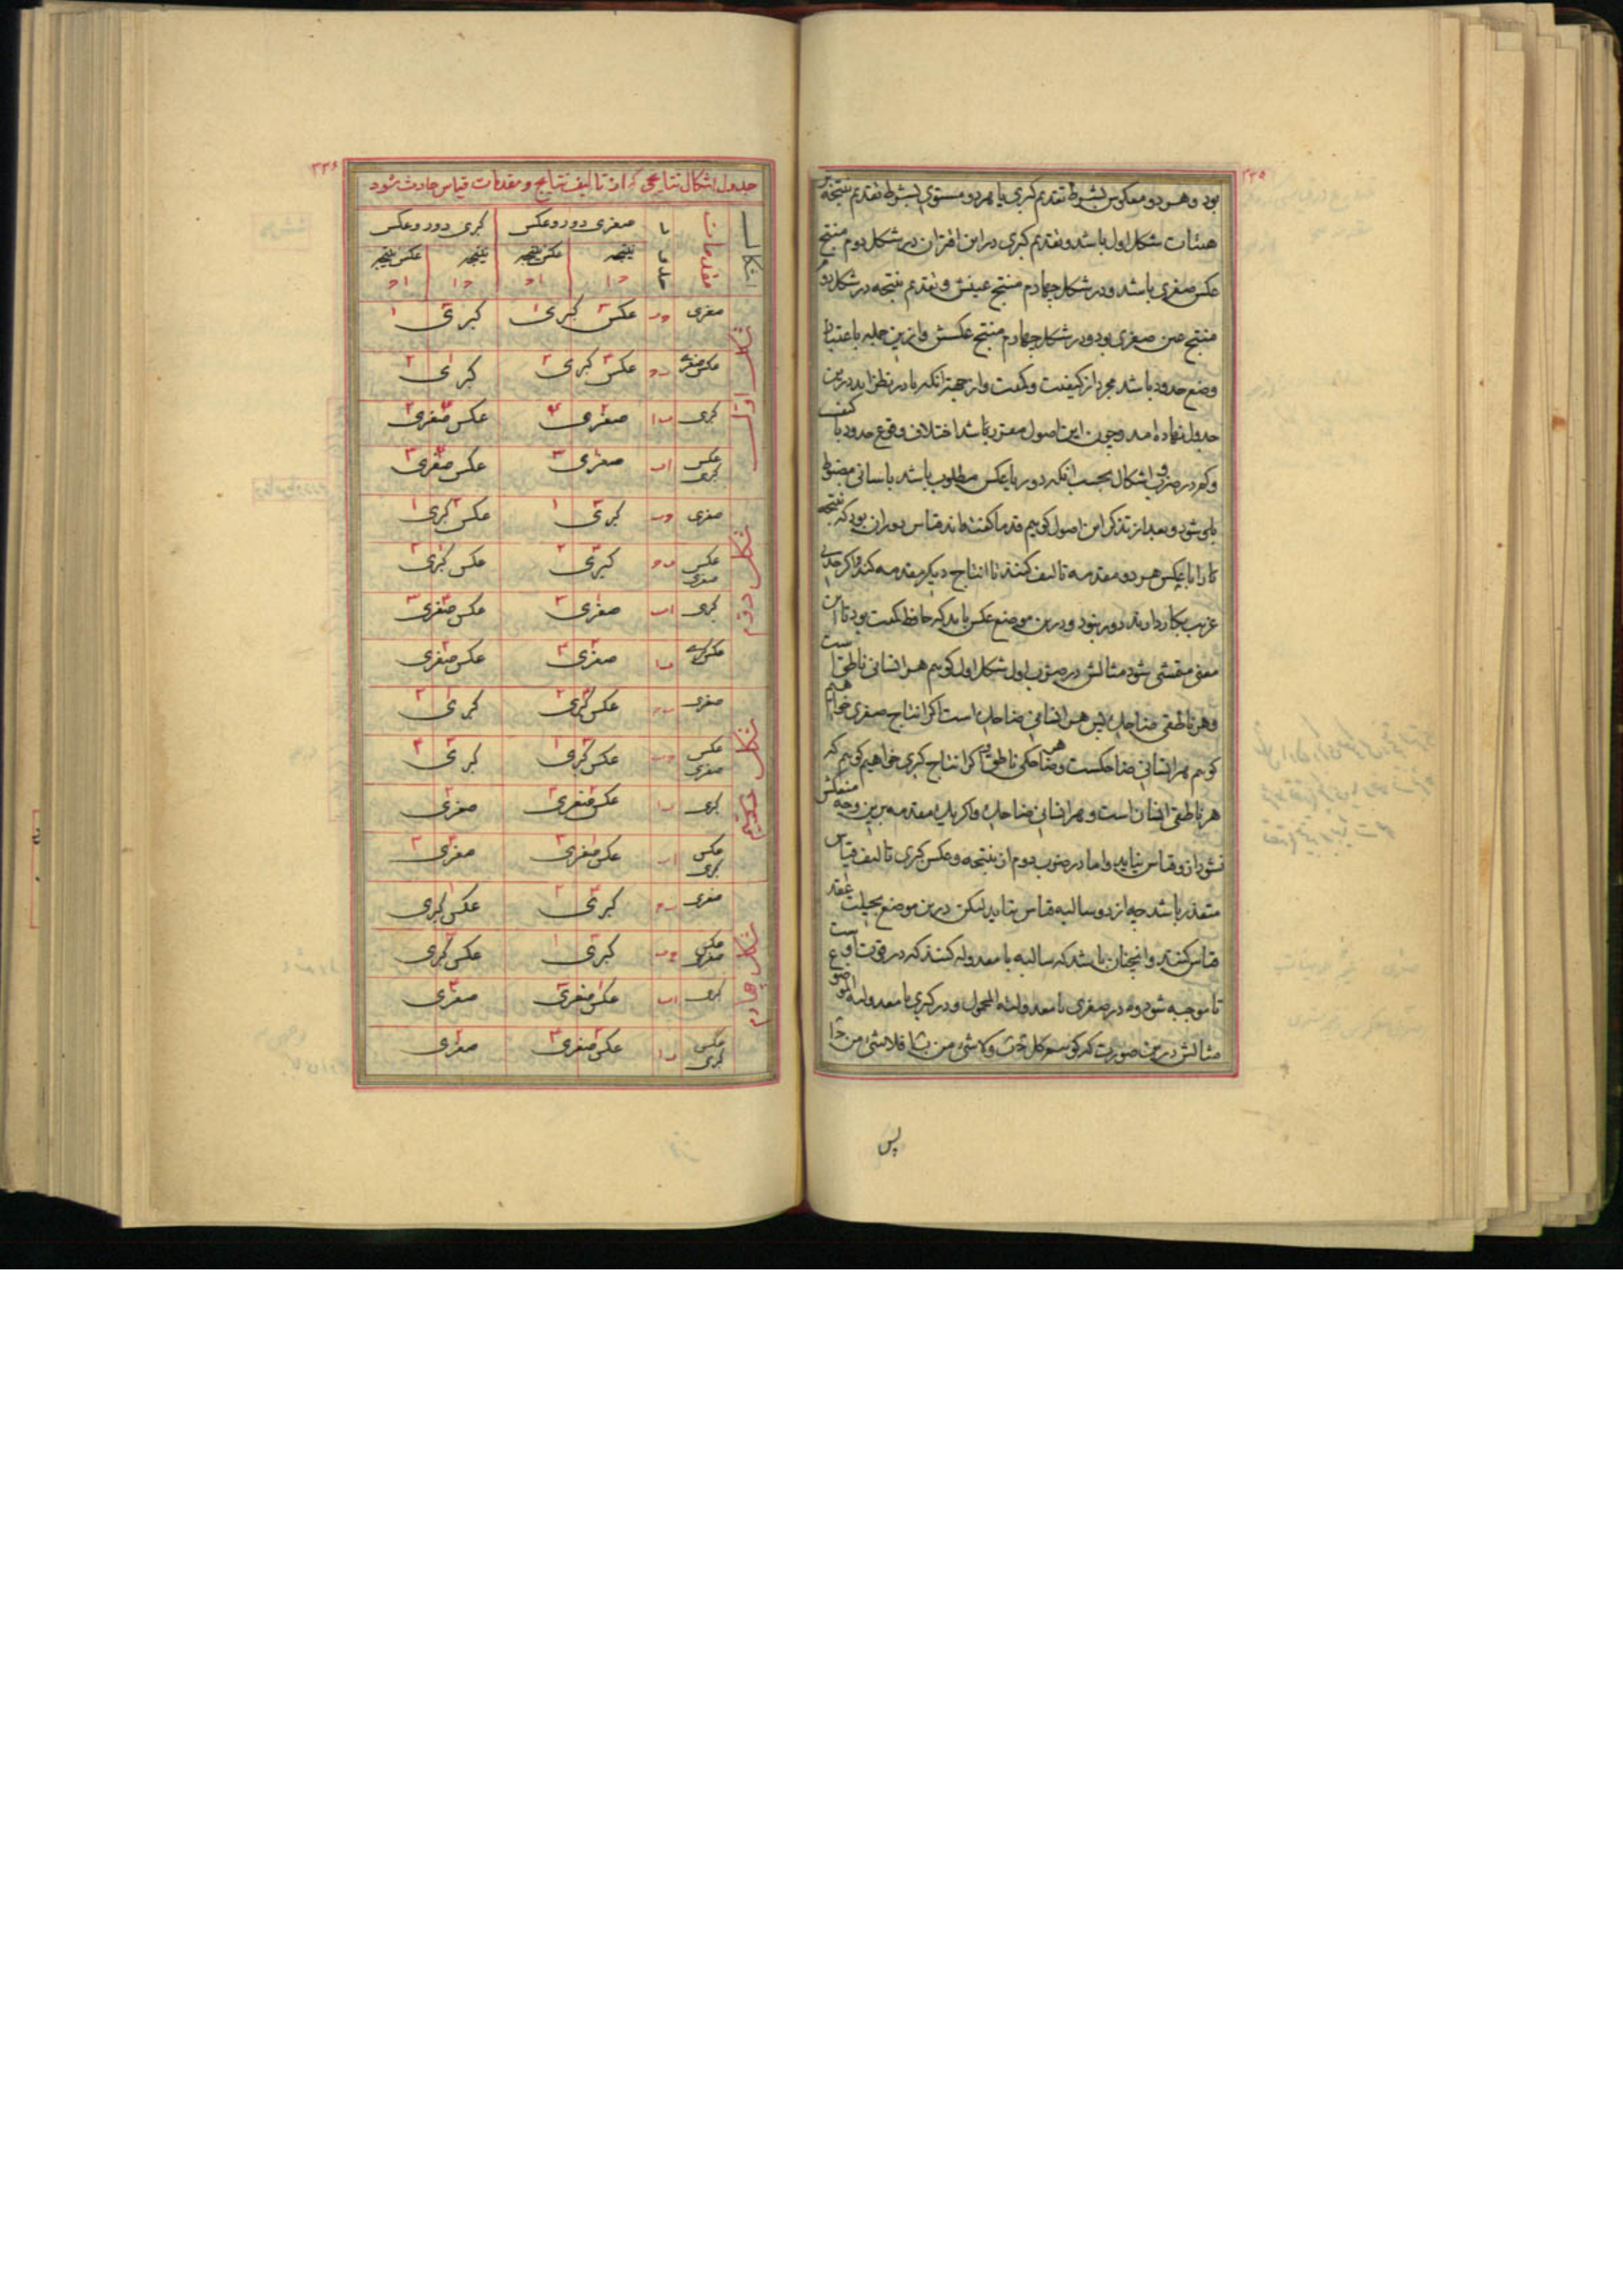 ۲۳۵
بود و هر دو معکوس بشرط تقدیم کبری یا هر دو مستوی بشرط تقدیم نتیجه بر
هیئات شکل اول باشد و تقدیم کبری در این اقتران در شکل دوم منتج
عکس صغری باشد و در شکل چهارم منتج عینش و تقدیم نتیجه در شکل دوم
منتج عین صغری بود و در شکل چهارم منتج عکسش و ازین جمله باعتبار
وضع حدود باشد مجرد از کیفیت و کمیت و از جهت آنکه تا در نظر آید درین
جدول نهاده امد و چون این اصول مقرر باشد اختلاف وقوع حدود با کیف
و کم در ضروب اشکال بحسب انکه دور یا عکس مطلوب باشد باسانی مضبوط
شود و بعد از تذکر این اصول کوییم قدما کفته‌اند قیاس دوران بود که نتیجه
را با عکس هر دو مقدمه تالیف کنند تا انتاج دیکر مقدمه کند و اکر حدی
غریب بکار دارند دور نبود و درین موضع عکس باید که حافظ کمیت بود تا این
معنی متمشی شود مثالش در ضرب اول شکل اول کوییم هر انسانی ناطق است
و هر ناطقی ضاحک پس هر انسانی ضاحک است اکر انتاج صغری خواهیم
کوییم هر انسانی ضاحکست و هر ضاحکی ناطق و اکر انتاج کبری خواهیم کوییم که
هر ناطقی انسان است و هر انسانی ضاحک و اکر یک مقدمه برین وجه منعکس
نشود ازو قیاس نیاید و اما در ضرب دوم از نتیجه و عکس کبری تالیف قیاس
متعذر باشد چه از دو سالبه قیاس نیاید لیکن درین موضع بحیلت عقد
قیاس کنند و انچنان باشد که سالبه با معدوله کنند که در قوت اوست
تا موجبه شود و در صغری با معدولة المحمول و در کبری با معدولة الموضوع
مثالش درین صورت که کوییم کل ج ب و لا شیء من ب ا فلا شیء من ج ا
پس
۲۳۶
جدول اشکال نتایجی که از تالیف نتایج و مقدمات قیاس حادث شود
اشکال مقدمات با صغری دور و عکس کبری دور و عکس
نتیجه عکس نتیجه نتیجه عکس نتیجه
شکل اول
صغری عکس کبری ۱ کبری ۱
عکس صغری عکس کبری ۲ کبری ۲
کبری صغری عکس صغری
عکس کبری صغری ۳ عکس صغری ۳
شکل دوم
صغری کبری ۱ عکس کبری ۱
عکس صغری کبری ۲ عکس کبری ۲
کبری صغری عکس صغری
عکس کبری صغری عکس صغری
شکل سیم
صغری عکس کبری کبری
عکس صغری عکس کبری کبری
کبری عکس صغری صغری
عکس کبری عکس صغری صغری
شکل چهارم
صغری کبری عکس کبری
عکس صغری کبری عکس کبری
کبری عکس صغری صغری
عکس کبری عکس صغری صغری